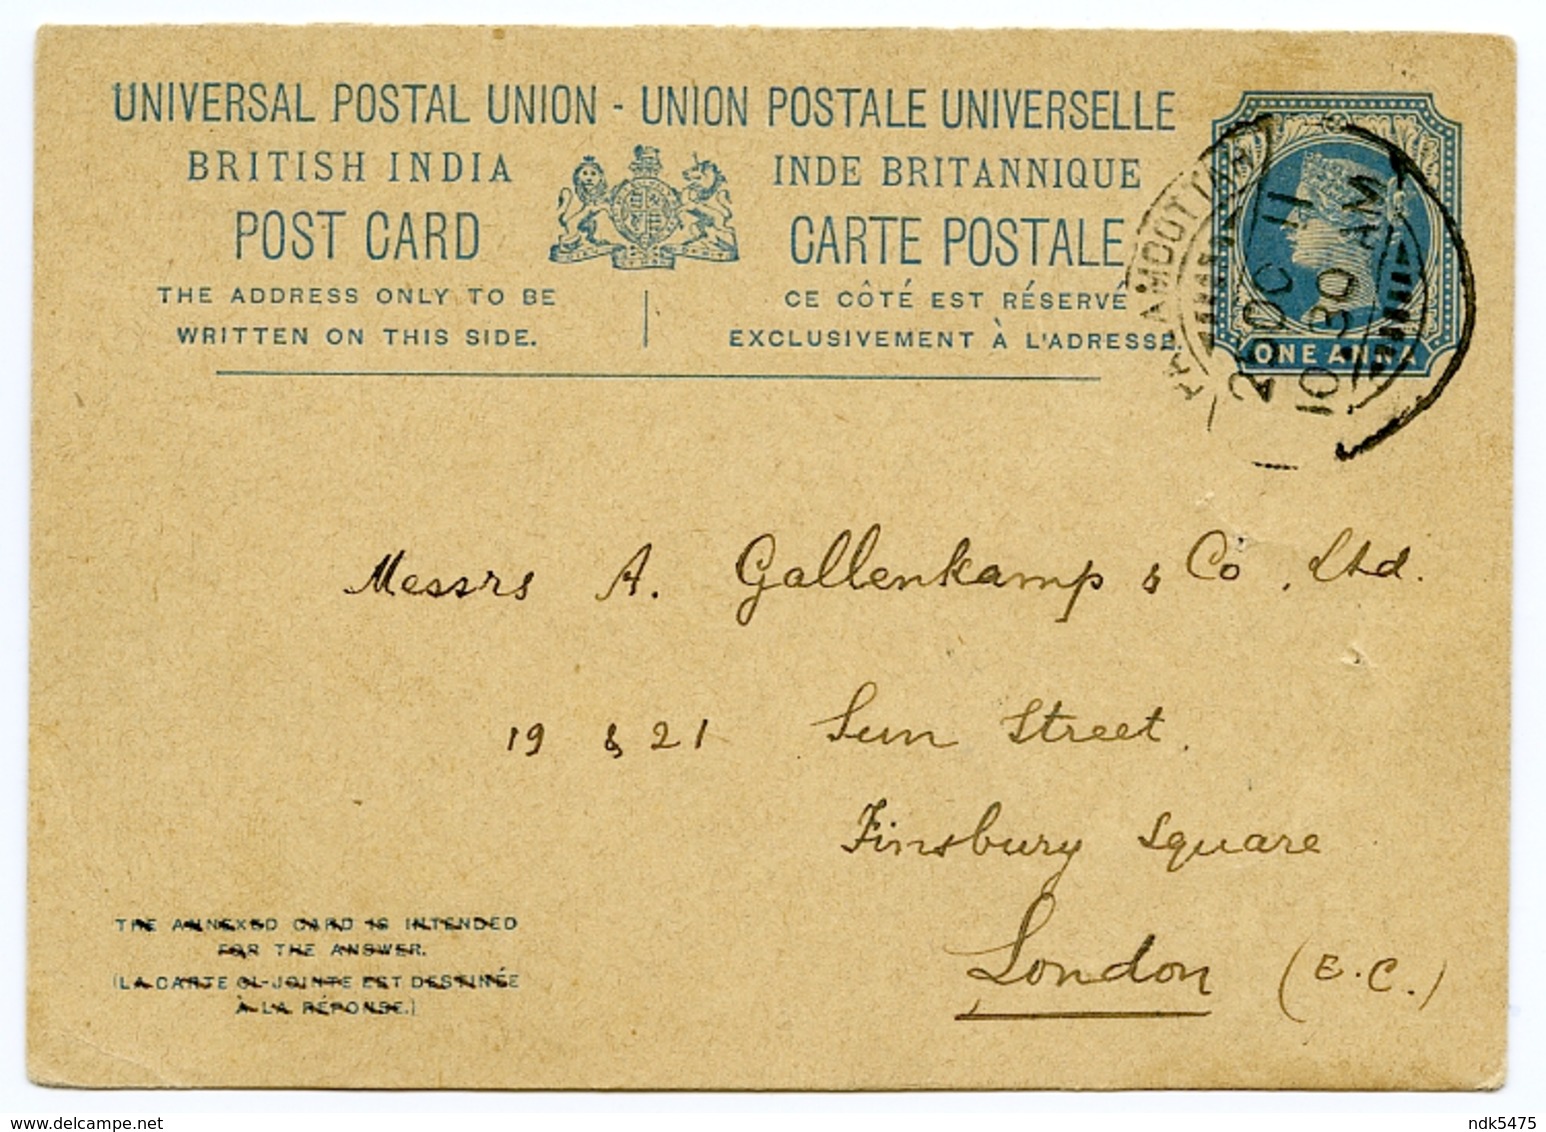 UNIVERSAL POSTAL UNION - UNION POSTALE UNIVERSELLE
BRITISH INDIA
POST CARD
THE ADDRESS ONLY TO BE
WRITTEN ON THIS SIDE.
INDE BRITANNIQUE
CARTE POSTALE
CE CÔTÉ EST RÉSERVÉ
EXCLUSIVEMENT À L'ADRESSE.
ONE ANNA
OC 11
10.30 AM
Messrs A. Gallenkamp & Co. Ltd.
19 & 21 Sun Street.
Finsbury Square
London (E.C.)
THE ANNEXED CARD IS INTENDED
FOR THE ANSWER.
(LA CARTE CI-JOINTE EST DESTINÉE
À LA RÉPONSE.)
delcampe.net
ndk5475